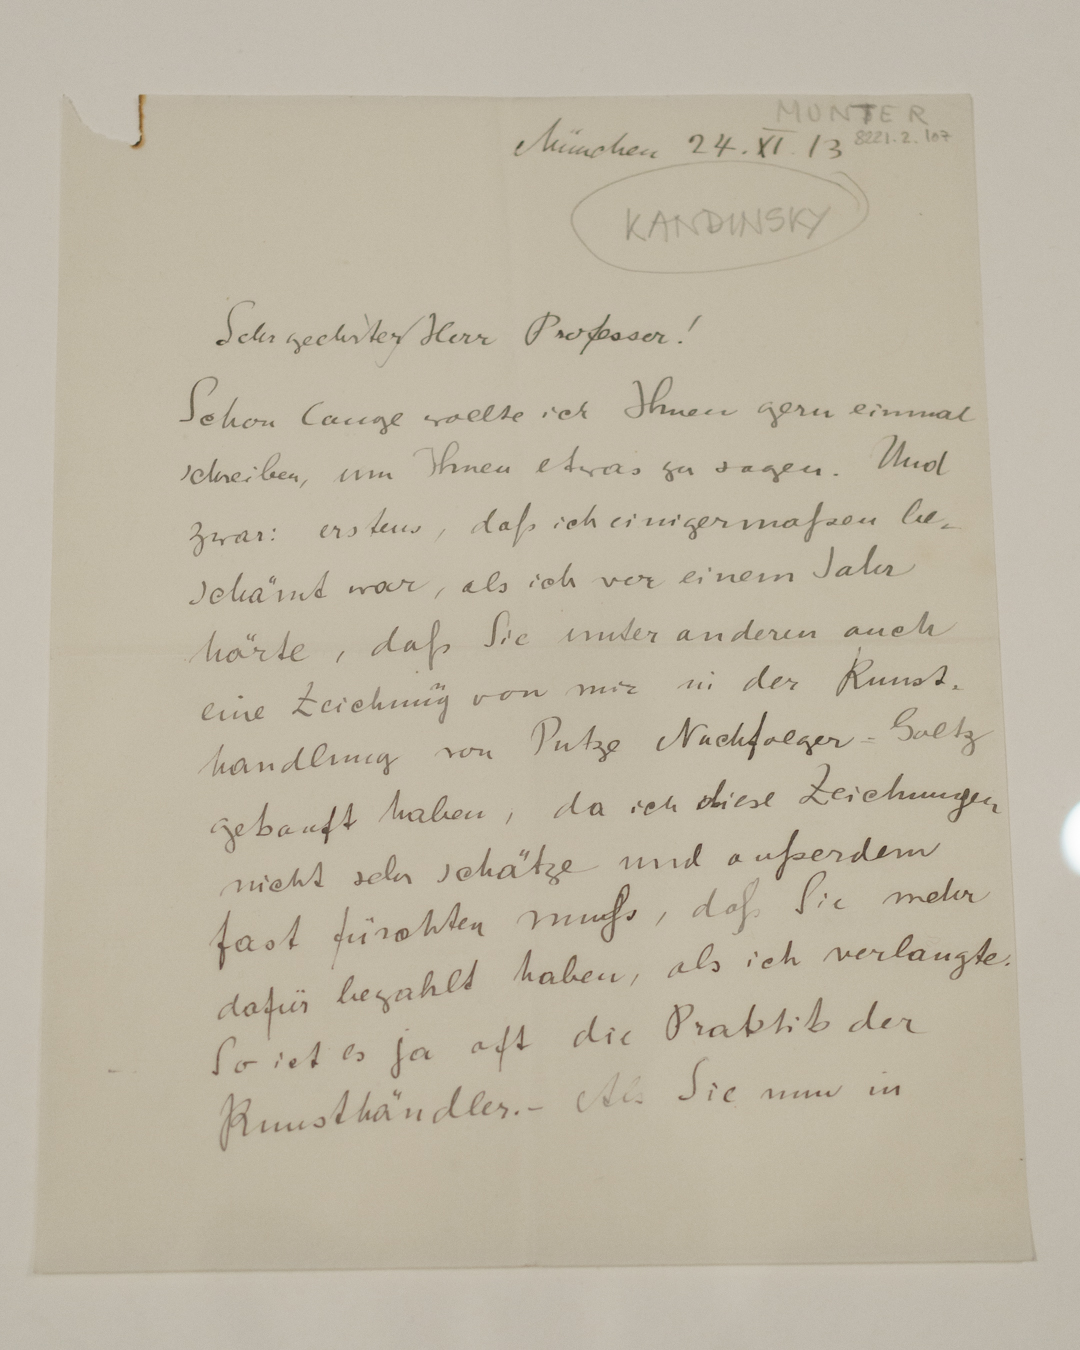 MUNTER
München 24.XI.13 8221.2.107
KANDINSKY
Sehr geehrter Herr Professor!
Schon lange wollte ich Ihnen gern einmal
schreiben, um Ihnen etwas zu sagen. Und
zwar: erstens, daß ich einigermaßen be-
schämt war, als ich vor einem Jahr
hörte, daß Sie unter anderen auch
eine Zeichnung von mir in der Kunst-
handlung von Putze Nachfolger=Goltz
gekauft haben, da ich diese Zeichnungen
nicht sehr schätze und außerdem
fast fürchten muß, daß Sie mehr
dafür bezahlt haben, als ich verlangte.
So ist es ja oft die Praktik der
Kunsthändler.– Als Sie nun in